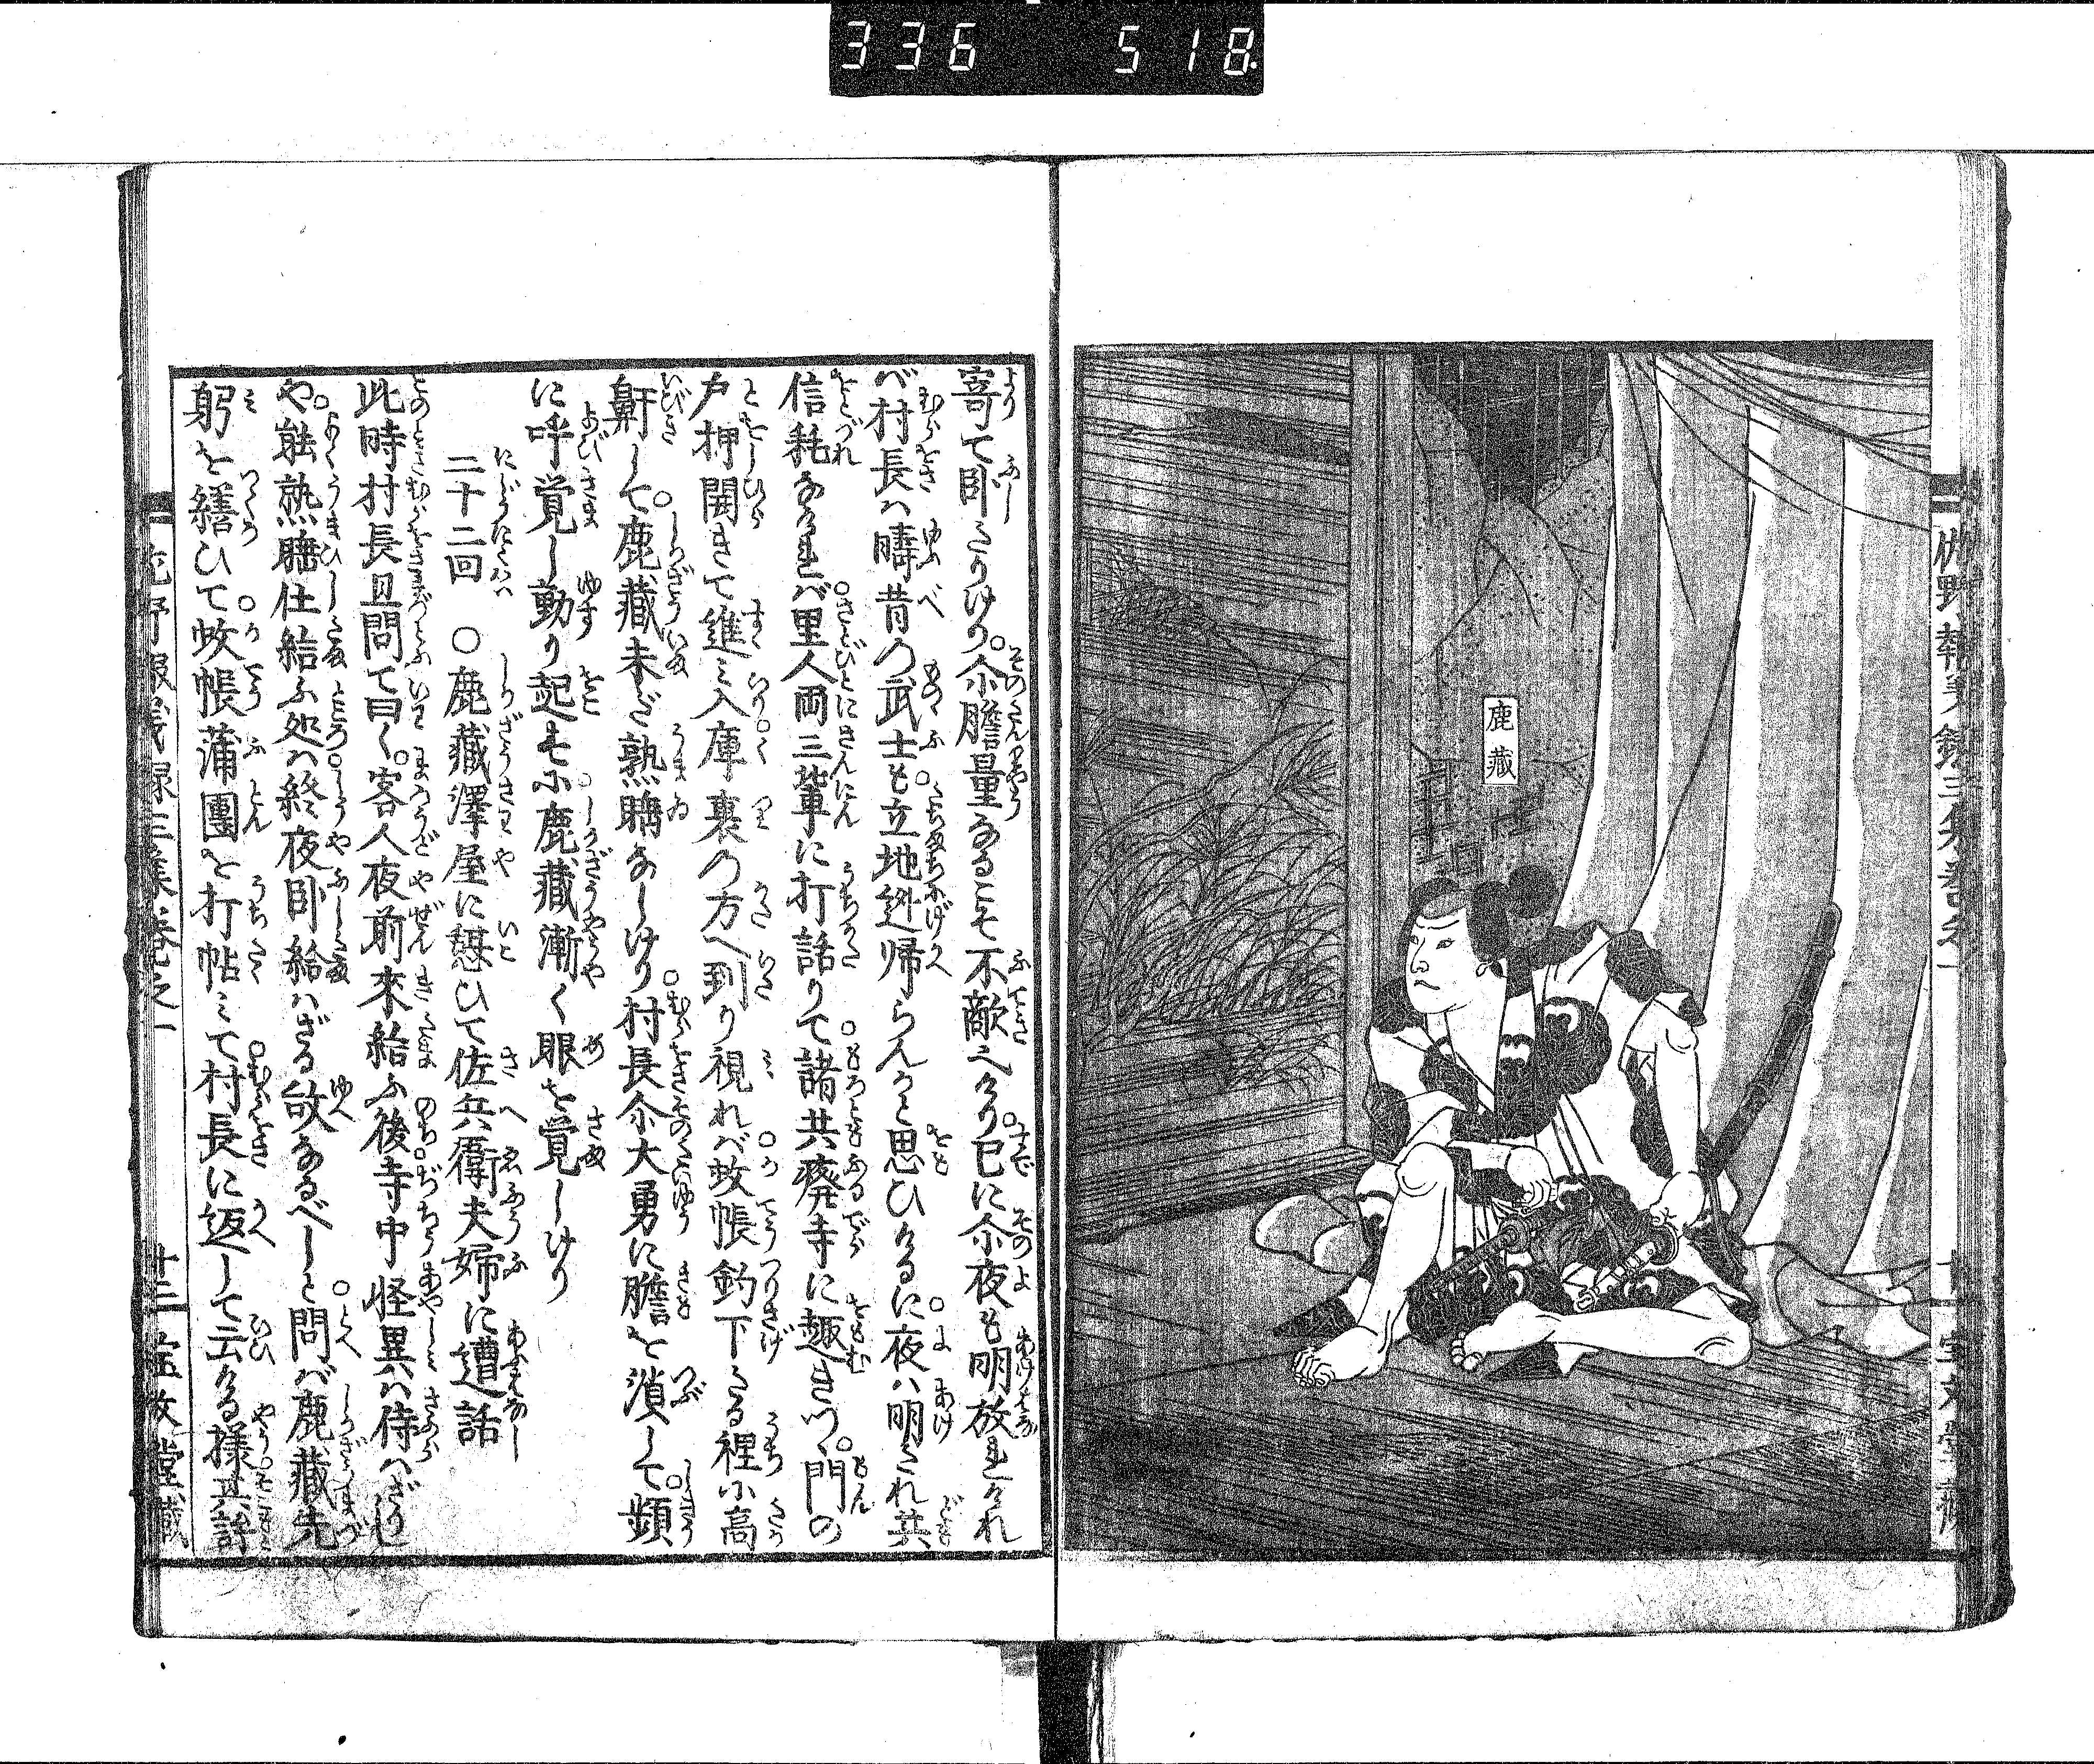 336 518
鹿藏
寄て卧たりけり。尒膽量なるこそ不敵といへり。已に尒夜も明放れければ
村長は疇昔の武士も立地迯帰らんかと思ひけるに。夜は明たれ共
信耗なければ。里人両三輩に打話りて。諸共癈寺に趣きつゝ。門の
戸押開きて進み入。庫裏の方へ到り視れば。蚊帳釣下たる裡に高
鼾して。鹿藏未だ熟睡なしけり。村長尒大勇に膽を潰して。頻
に呼覚し動り起すに。鹿藏漸く眼を覚しけり
二十二回 ○鹿藏澤屋に憇ひて佐兵衛夫婦に遭話
此時村長且問て曰く。客人夜前來給ふ後。寺中怪異は侍はざりし
や。能熟睡仕給ふ処は。終夜卧給はざる故なるべしと。問ば鹿藏先
躬を繕ひて。蚊帳蒲團を打帖みて。村長に返して云ける様。其許
佐野報義録三集巻之一 廿三 宝文堂藏